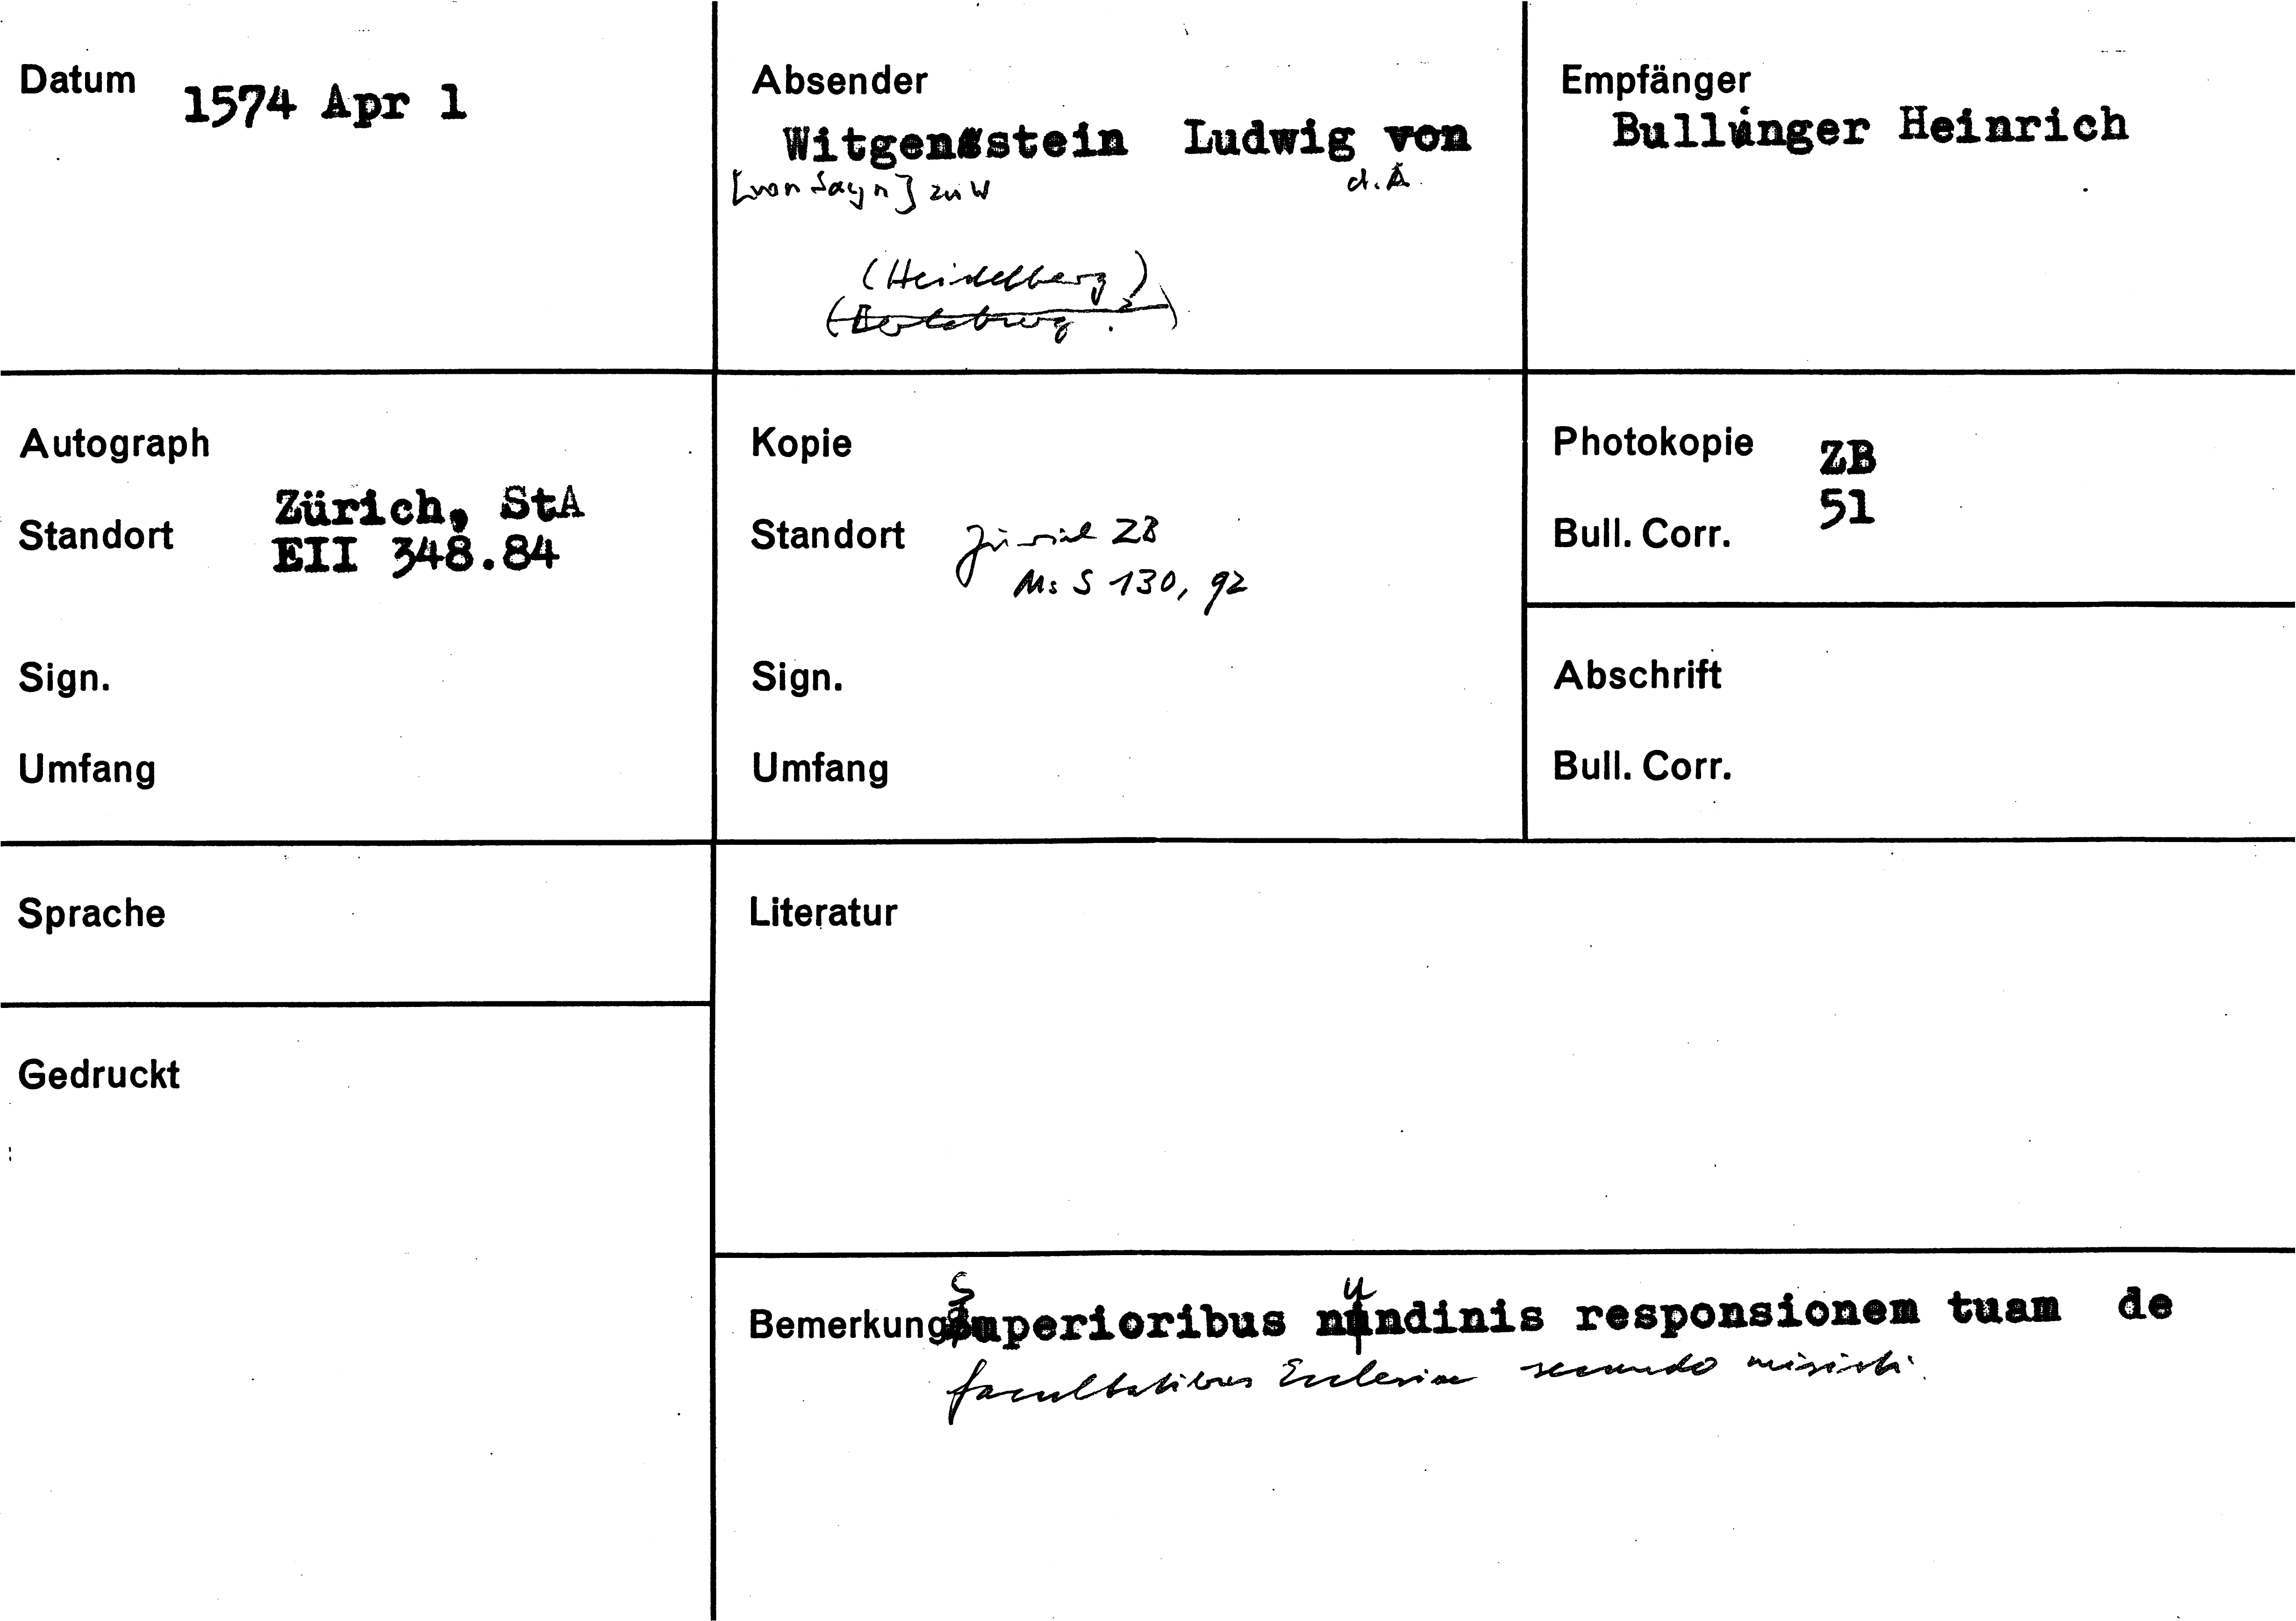 Datum 1574 Apr 1
Absender
Witgenstein Ludwig von
[von Sayn] zu W d.Ä.
(Heidelberg)
Empfänger
Bullinger Heinrich
Autograph
Standort Zürich, StA
EII 348.84
Sign.
Umfang
Kopie
Standort Zürich ZB
Ms S 130, 92
Sign.
Umfang
Photokopie ZB
Bull. Corr. 51
Abschrift
Bull. Corr.
Sprache
Literatur
Gedruckt
Bemerkung Superioribus nundinis responsionem tuam de
facultatibus Ecclesiae secundo misisti.